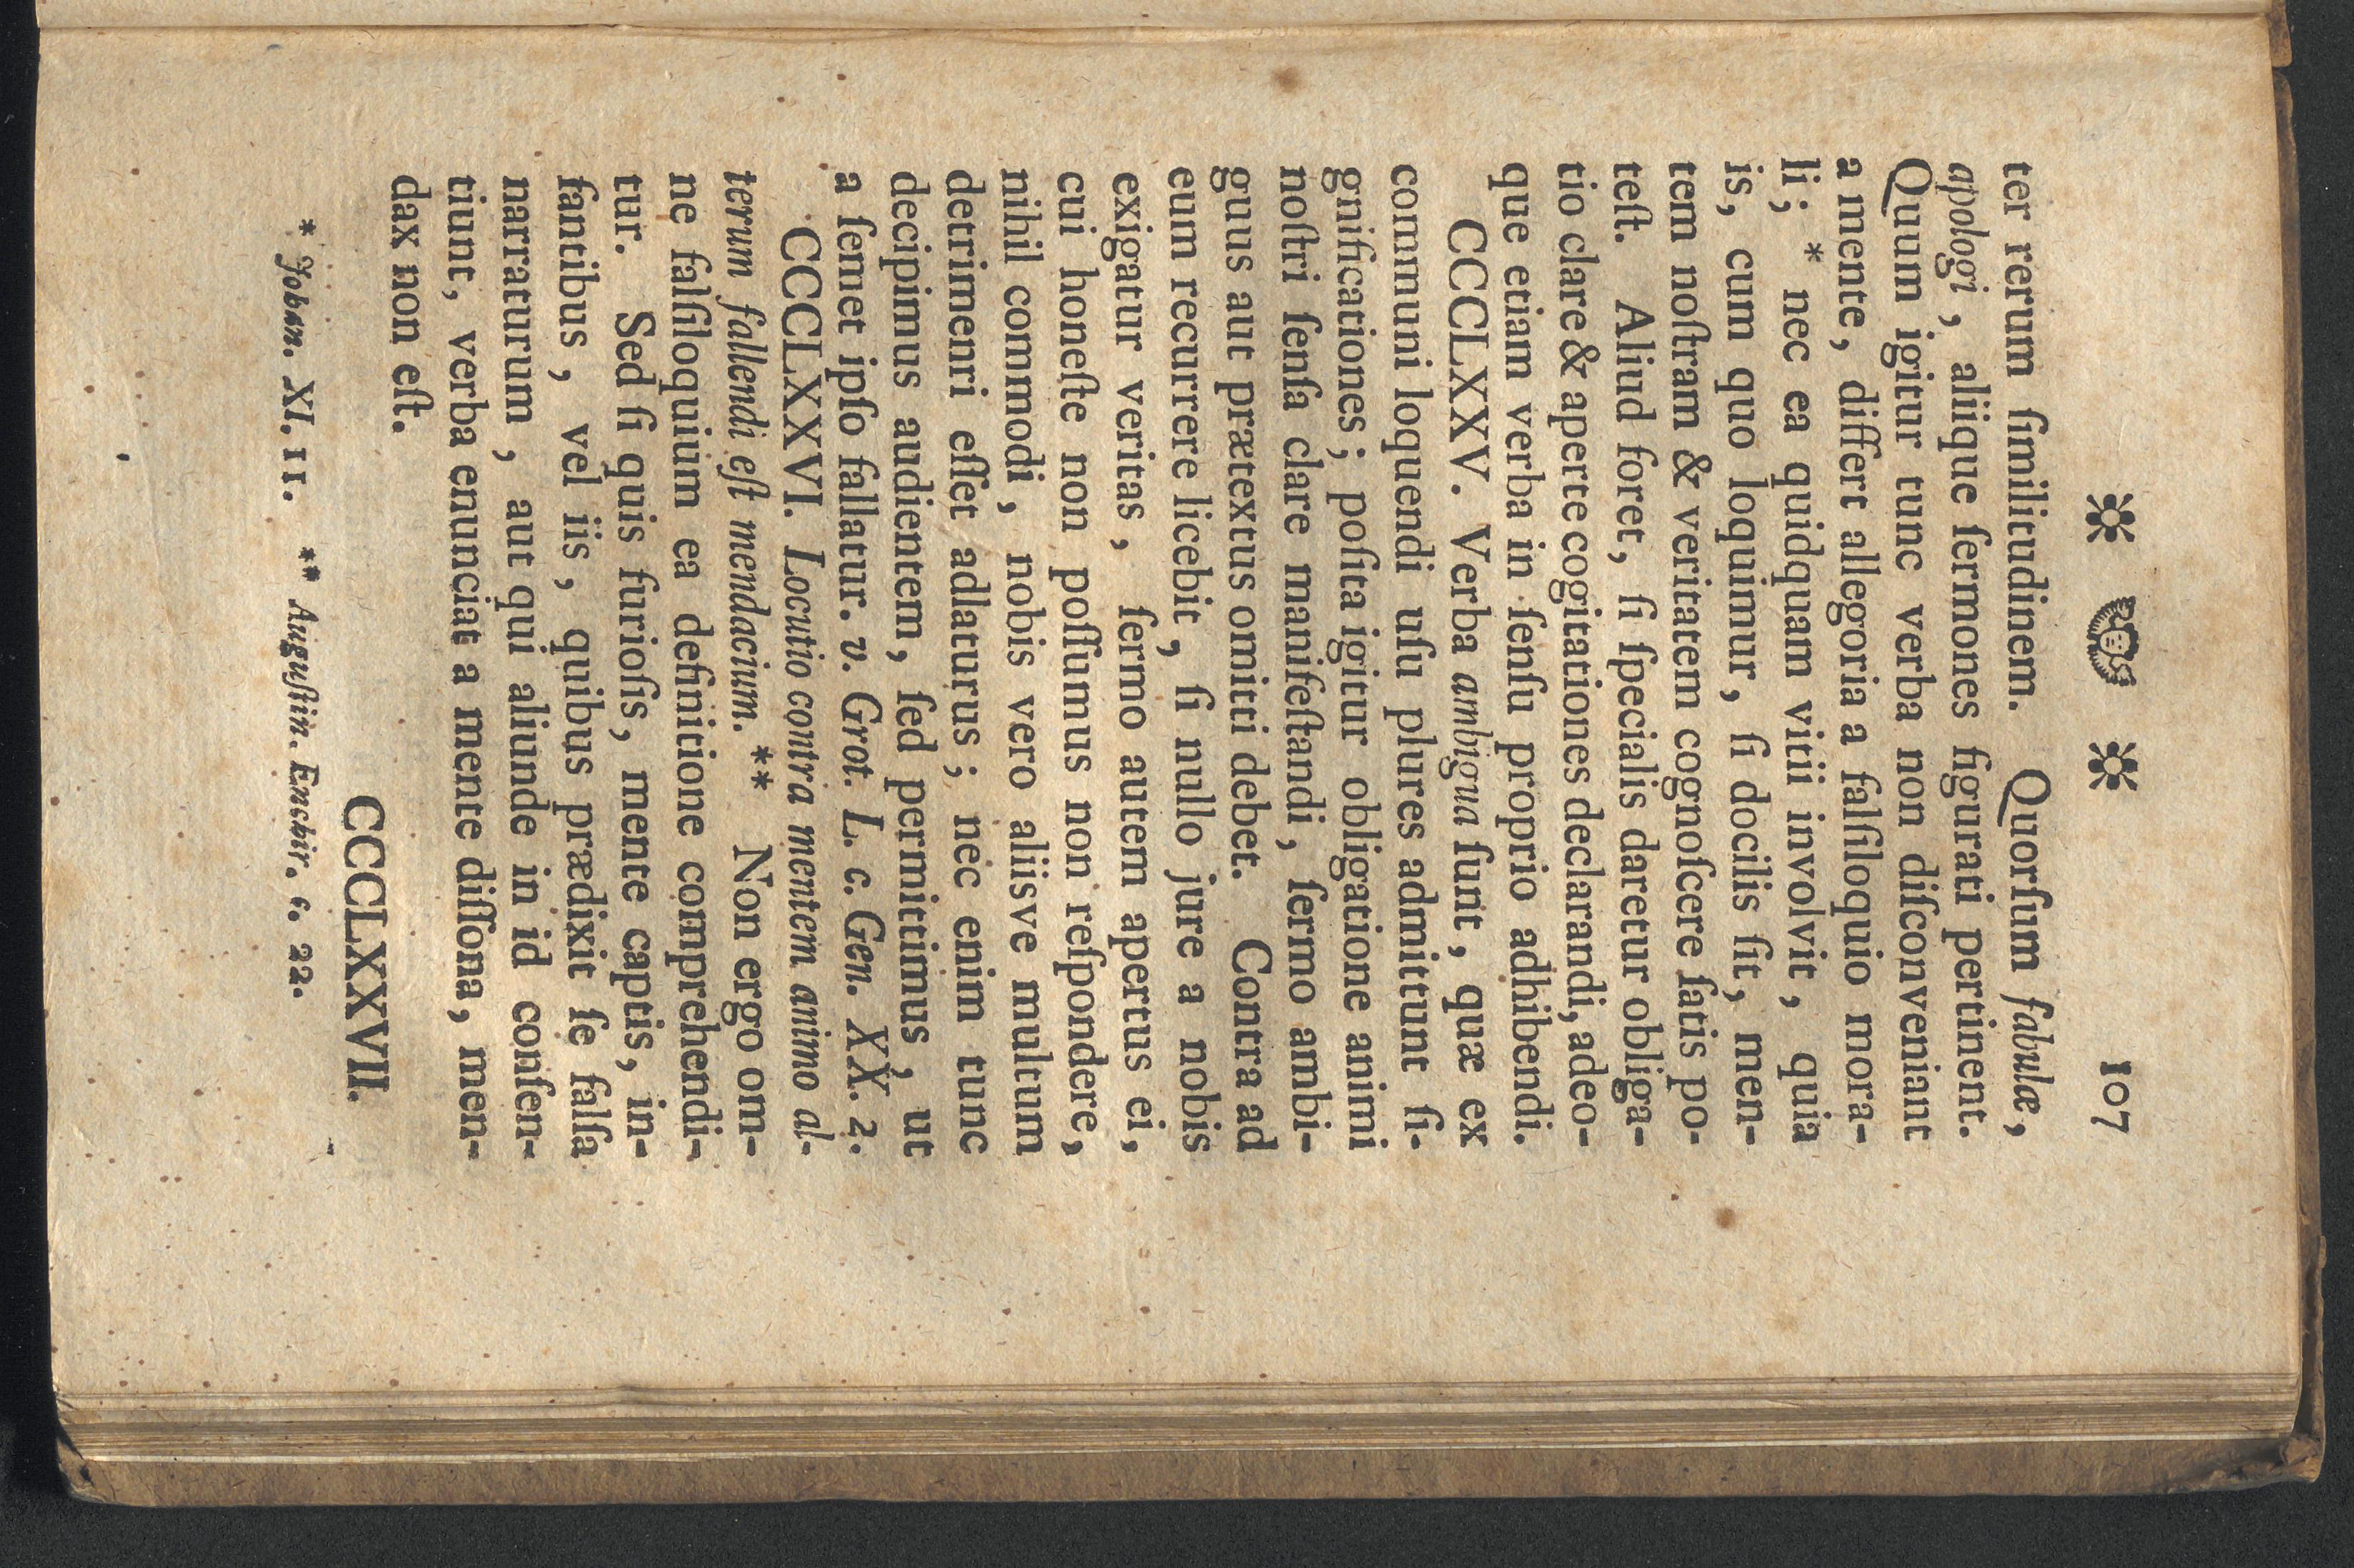 107
ter rerum ſimilitudinem. Quorſum fabulæ,
apologi, aliique ſermones figurati pertinent.
Quum igitur tunc verba non diſconveniant
a mente, differt allegoria a falſiloquio mora-
li; * nec ea quidquam vitii involvit, quia
is, cum quo loquimur, ſi docilis ſit, men-
tem noſtram & veritatem cognoſcere ſatis po-
teſt. Aliud foret, ſi ſpecialis daretur obliga-
tio clare & aperte cogitationes declarandi, adeo-
que etiam verba in ſenſu proprio adhibendi.
CCCLXXV. Verba ambigua ſunt, quæ ex
communi loquendi uſu plures admittunt ſi-
gnificationes; poſita igitur obligatione animi
noſtri ſenſa clare manifeſtandi, ſermo ambi-
guus aut prætextus omitti debet. Contra ad
eum recurrere licebit, ſi nullo jure a nobis
exigatur veritas, ſermo autem apertus ei,
cui honeſte non poſſumus non reſpondere,
nihil commodi, nobis vero aliisve multum
detrimenri eſſet adlaturus; nec enim tunc
decipimus audientem, ſed permittimus, ut
a ſemet ipſo fallatur. v. Grot. L. c. Gen. XX. 2.
CCCLXXVI. Locutio contra mentem animo al-
terum fallendi eſt mendacium. ** Non ergo om-
ne falſiloquium ea definitione comprehendi-
tur. Sed ſi quis furioſis, mente captis, in-
fantibus, vel iis, quibus prædixit ſe falſa
narraturum, aut qui aliunde in id conſen-
tiunt, verba enunciat a mente diſſona, men-
dax non eſt.
CCCLXXVII.
* Johan. XI. 11. ** Auguſtin. Enchir. c. 22.